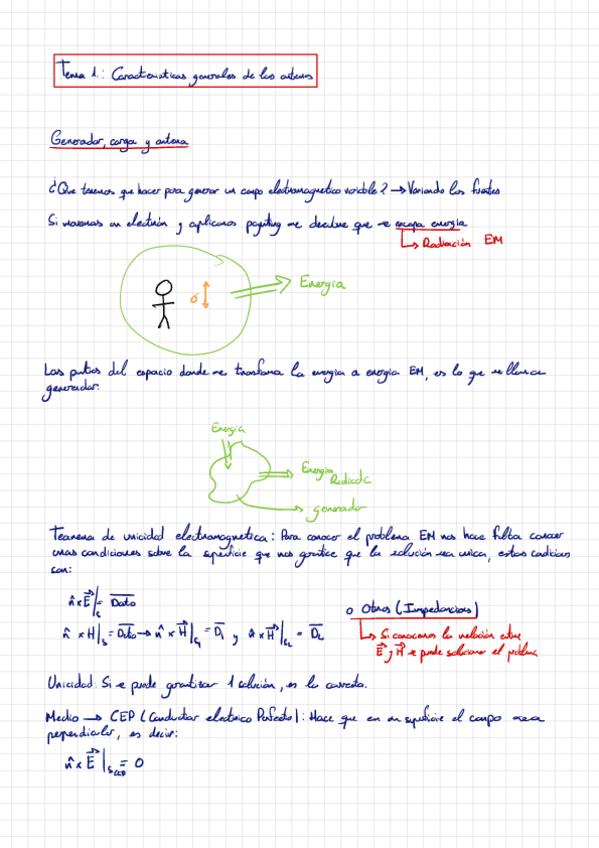 Tema 1.: Características generales de las antenas
Generador, carga y antena
¿Que tenemos que hacer para generar un campo electromagnetico variable? → Variando las fuentes
Si movemos un electrón y aplicamos poynting se descubre que se escapa energía
Radiación EM
Energía
Los puntos del espacio donde se transforma la energia a energia EM, es lo que se llama
generador.
Energía
Energía
Radiada
generador
Teorema de unicidad electromagnetica: Para conocer el problema EM nos hace falta conocer
unas condiciones sobre la superficie que nos garantice que la solución sea unica, estas condiciones
son:
n̂ x E⃗|s = Dato
n̂ x H|s = Dato → n̂ x H⃗|s₁ = D₁ y n̂ x H⃗|s₂ = D₂
o Otros (Impedancias)
Si conocemos la relación entre
E⃗ y H⃗ se puede solucionar el problema
Unicidad: Si se puede garantizar 1 solución, es la correcta.
Medio → CEP (Conductor electrico Perfecto): Hace que en su superficie el campo sea
perpendicular, es decir:
n̂ x E⃗|s CEP = 0